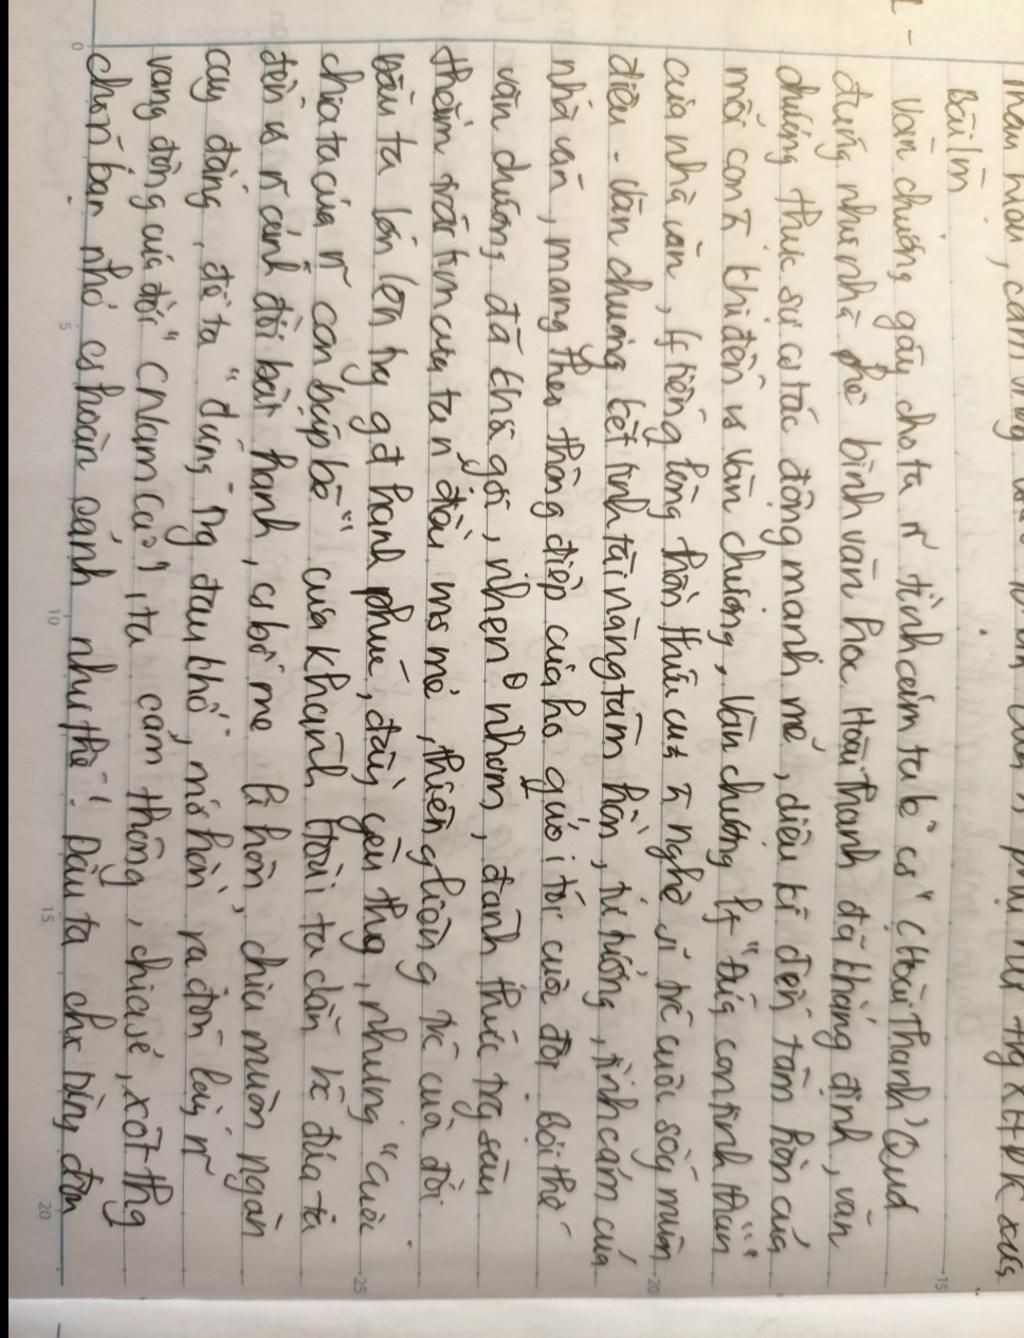 Bài làm
Văn chương gây cho ta n~ tình cảm ta k° có" (Hoài Thanh) Quả
đúng như nhà phê bình văn học Hoài Thanh đã khẳng định, văn
chương thực sự có tác động mạnh mẽ, diệu kì đến tâm hồn của
mỗi con khi đến vs văn chương, văn chương là "đứa con tinh thần"
của nhà văn, là tiếng lòng thổn thức của nghệ sĩ trc cuộc sống muôn
điều. Văn chương kết tinh tài năng tâm hồn, tư tưởng, tình cảm của
nhà văn, mang theo thông điệp của họ gửi tới cuộc đời. Bởi thế
văn chương đã khơi gợi, nhen nhóm, đánh thức trg sâu
thẳm trái tim của ta n~ điều ms mẻ, thiêng liêng trc của đời
Đâu ta lớn lên trg gđ hạnh phúc, đầy yêu thg, nhưng "cuộc
chia tay của n~ con búp bê" của Khánh Hoài ta dần bc đưa ta
đến vs n~ cảnh đời bất hạnh, cs bố mẹ li hôn, chịu muôn ngàn
cay đắng, để ta "đứng trg đau khổ, mở hồn ra đón lấy n~
vang động của đời" (Nam Cao), ta cảm thông, chia sẻ, xót thg
cho n~ bạn nhỏ cs hoàn cảnh như thế! Đâu ta chx từng đón
0
5
10
15
20
25
20
15